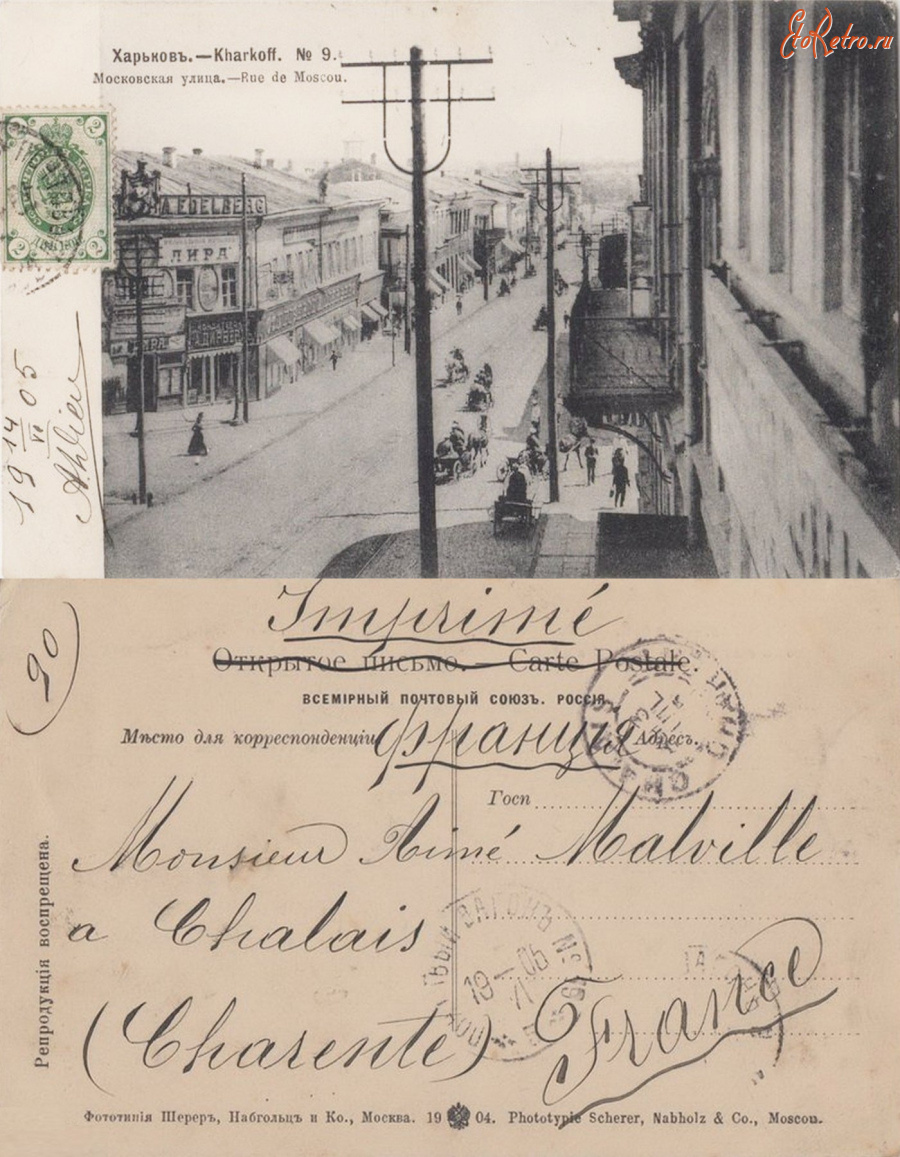 EtoRetro.ru
Харьковъ.—Kharkoff. № 9.
Московская улица.—Rue de Moscou.
2 2
2 2
A. EDELBERG
ЛИРА
19 14/VI 05
Imprimé
Открытое письмо. — Carte Postale.
ВСЕМІРНЫЙ ПОЧТОВЫЙ СОЮЗЪ. РОССІЯ.
Мѣсто для корреспонденціи
Франція
Адресъ.
90
Госп
Monsieur Aimé Malville
a Chalais
(Charente)
France
ВАГОНЪ №
19 — 05
Репродукція воспрещена.
Фототипія Шереръ, Набгольцъ и Ко., Москва. 19 04. Phototypie Scherer, Nabholz & Co., Moscou.